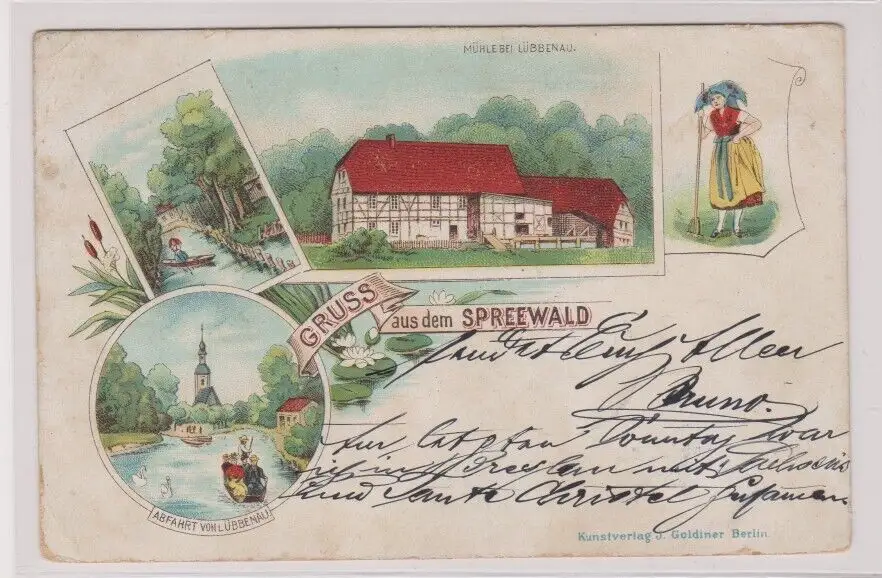 MÜHLE BEI LÜBBENAU.
GRUSS
aus dem SPREEWALD
sendet Euch Allen
Bruno.
letzten Sonntag war
in mit
und Tante Christel zusammen
ABFAHRT VON LÜBBENAU.
Kunstverlag J. Goldiner Berlin.